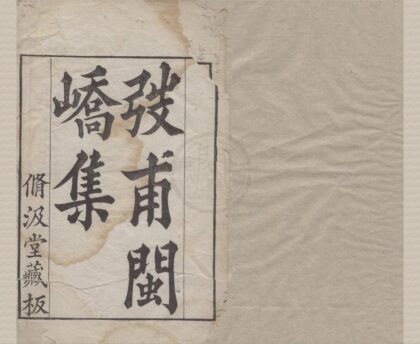 弢甫閩
嶠集
脩汲堂藏板